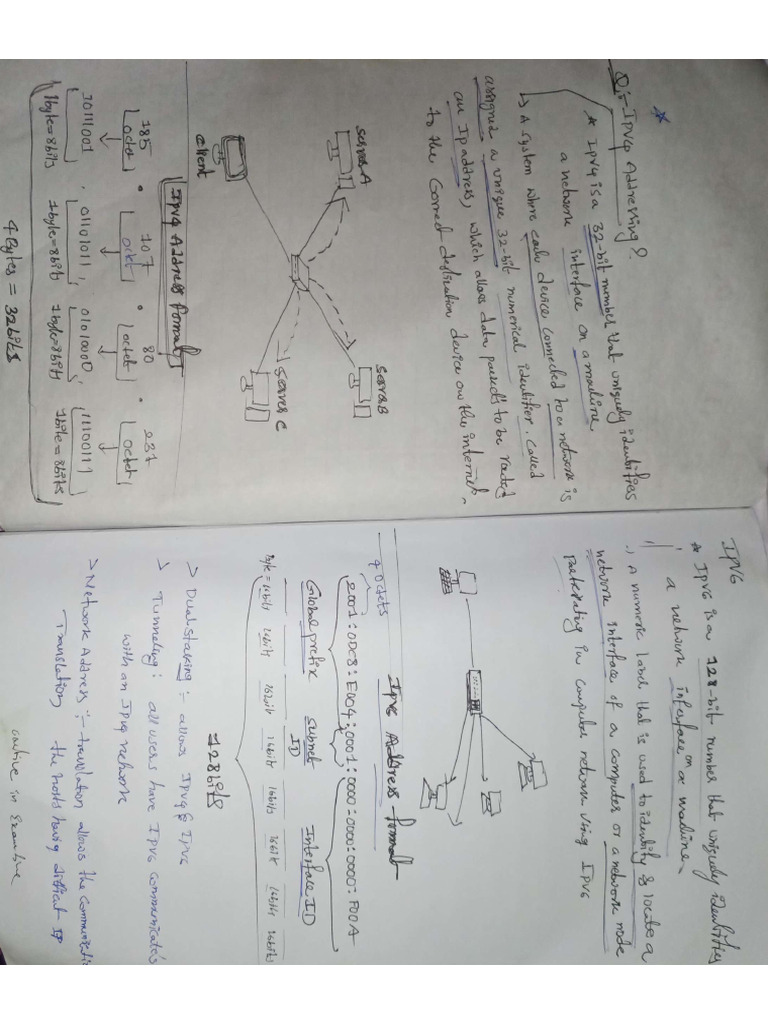 Q:- IPV4 Addressing?
* IPV4 is a 32-bit number that uniquely identifies
a network interface on a machine
↳ A system where each device connected to a network is
assigned a unique 32-bit numerical identifier. called
an Ip address, which allows data packets to be routed
to the Correct destination device on the internet.
Server A
Server B
Server C
client
IPV4 Address format
185 . 107 . 80 . 231
octet octet octet octet
10111001 . 01101011 . 01010000 . 11100111
1byte=8bits 1byte=8bits 1byte=8bits 1bite=8bits
4 Bytes = 32bits
IPV6
* IPV6 is a 128-bit number that uniquely identifies
a network interface on a machine.
A numeric label that is used to identify & locate a
network interface of a computer or a network node
in computer network using IPV6
IPv6 Address format
4 octets
2001:0DC8:E004:0001:0000:0000:0000:F00A
Global prefix Subnet ID Interface ID
Byte = 16bits 16bits 16bits 16bits 16bits 16bits 16bits 16bits
128bits
> Dual staking :- allows IPV4 & IPV6
> Tunneling: all users have IPV6 communicates
with an IPV4 network
> Network Address :- translation allows the
Translation the hosts having IP